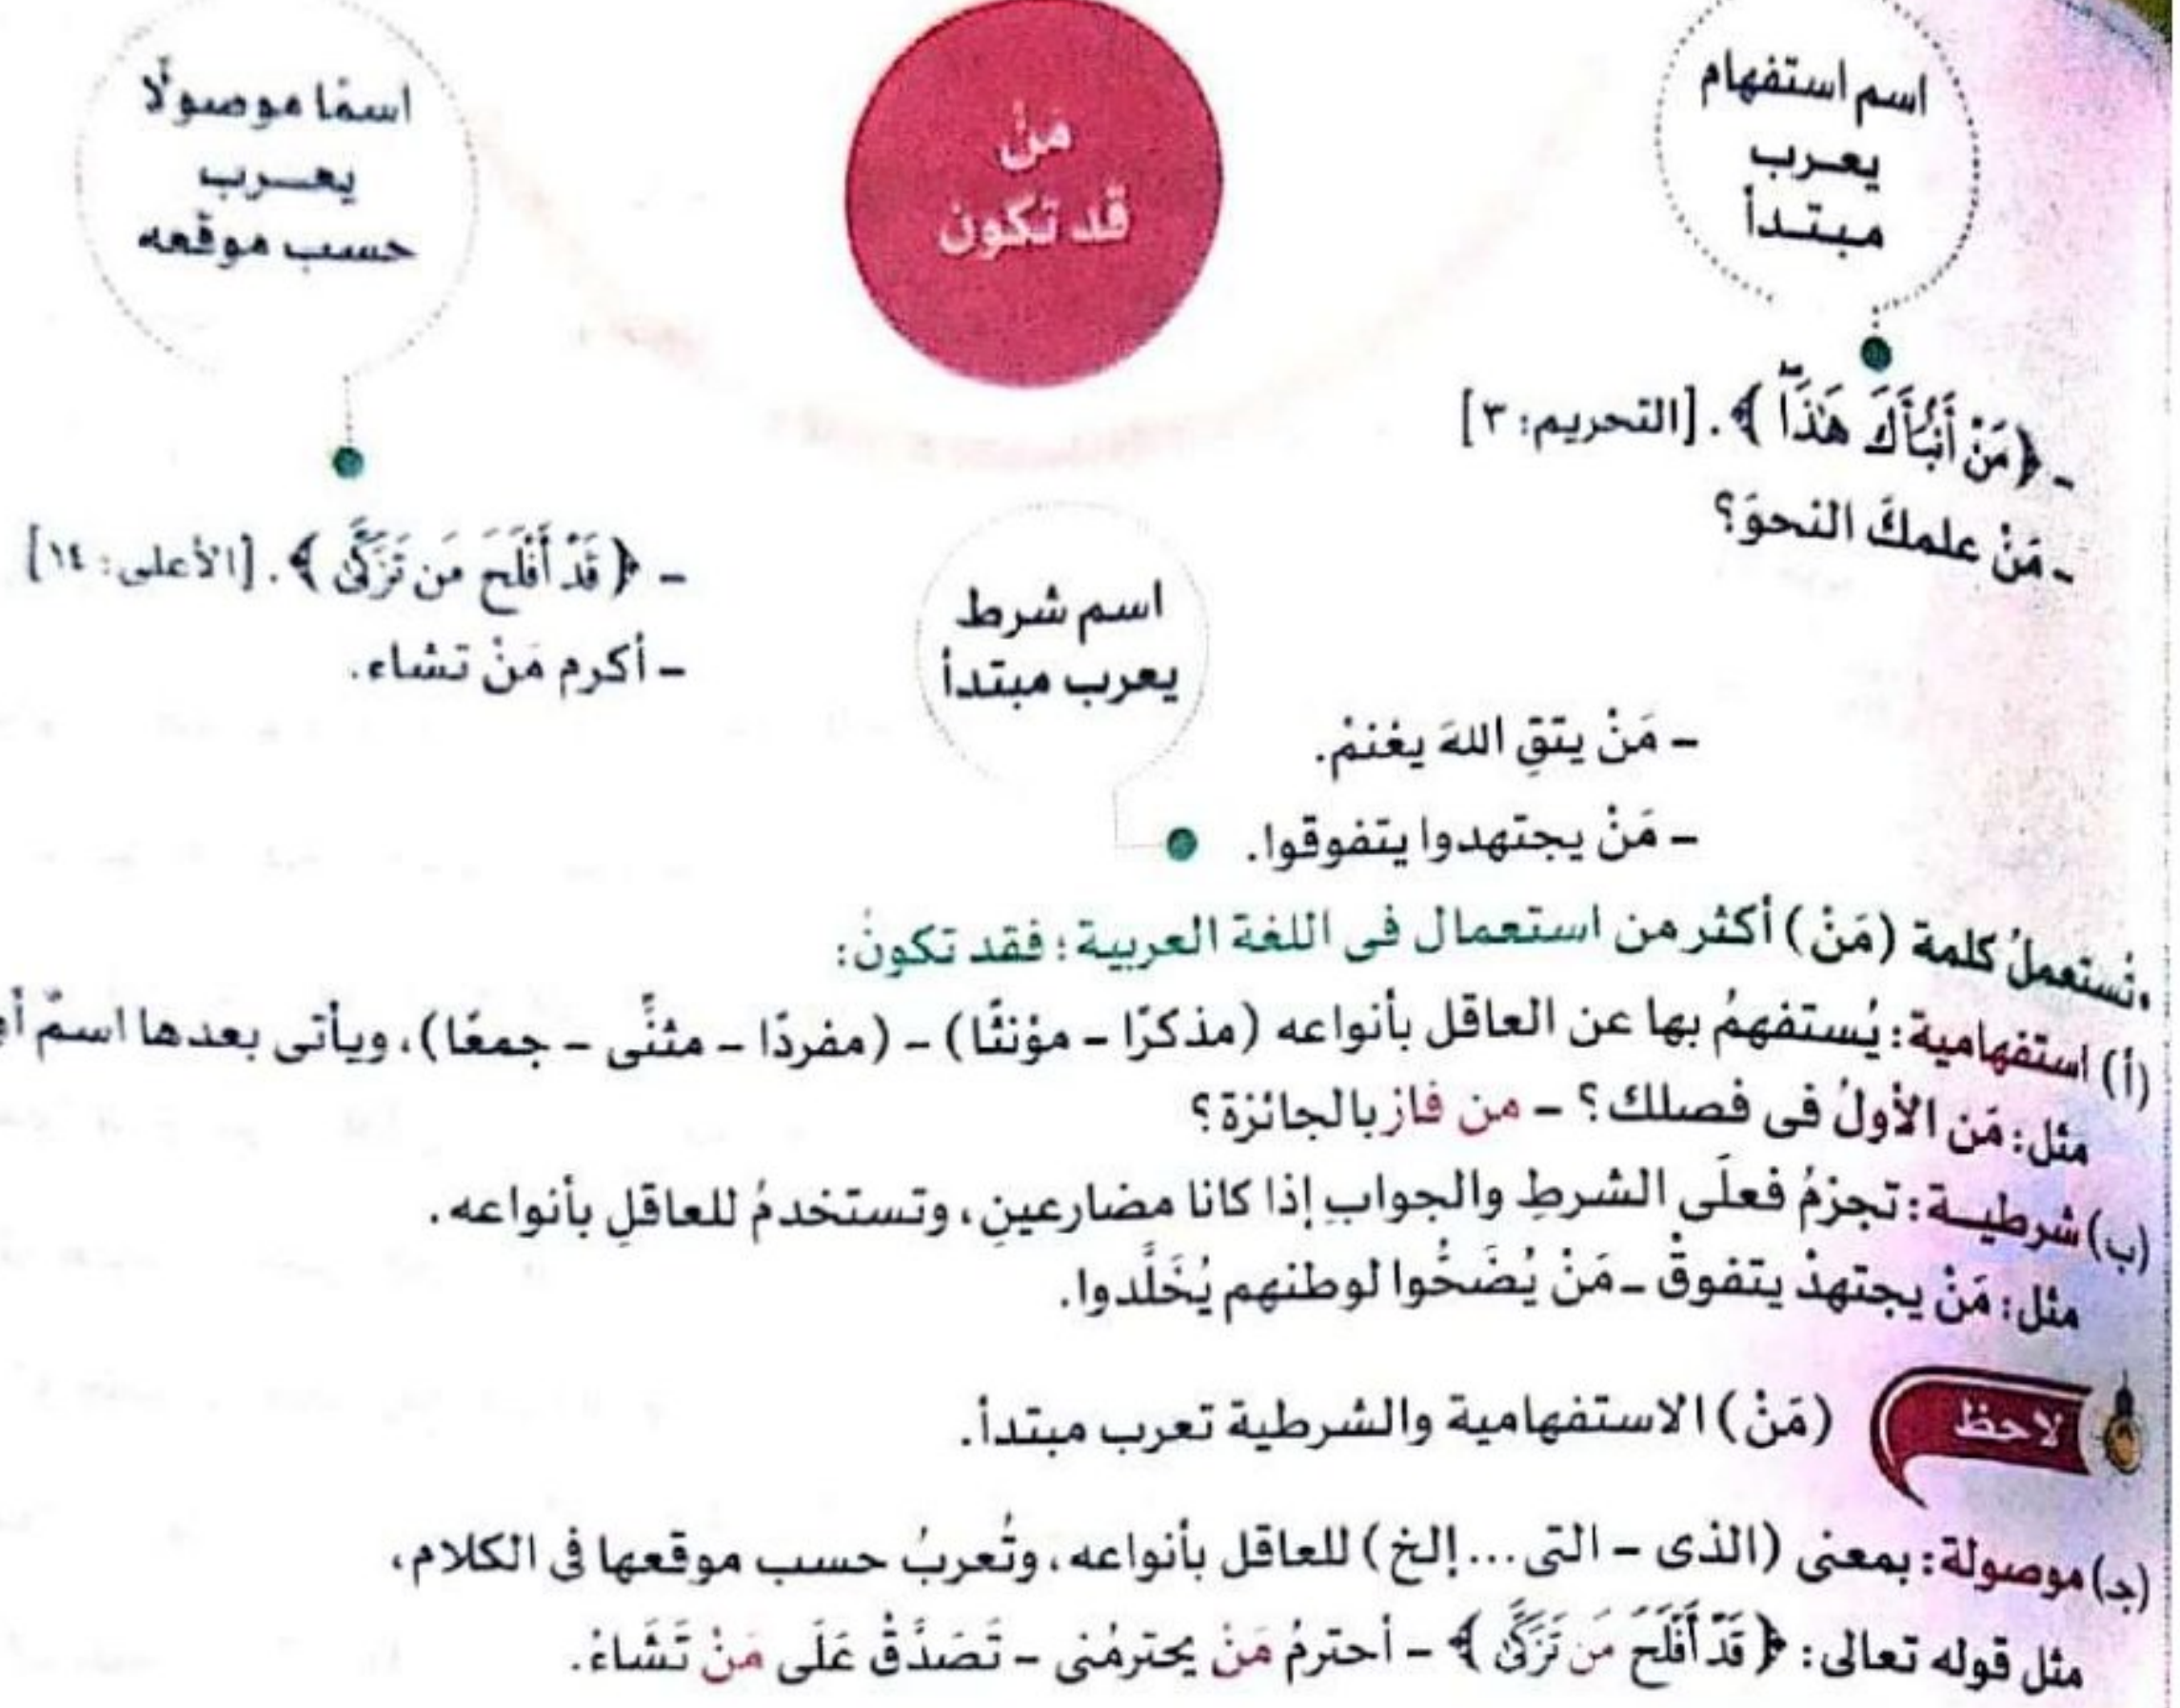 مَنْ
قد تكون
اسم استفهام
يعرب
مبتدأ
- ﴿مَنْ أَنۢبَأَكَ هَٰذَاۖ﴾. [التحريم: ٣]
- مَنْ علمكَ النحوَ؟
اسم شرط
يعرب مبتدأ
- مَنْ يتقِ اللهَ يغنمْ.
- مَنْ يجتهدوا يتفوقوا.
اسمًا موصولًا
يعرب
حسب موقعه
- ﴿قَدْ أَفْلَحَ مَن تَزَكَّىٰ﴾. [الأعلى: ١٤]
- أكرم مَنْ تشاء.
• تُستعملُ كلمة (مَنْ) أكثر من استعمال فى اللغة العربية؛ فقد تكونُ:
(أ) استفهامية: يُستفهمُ بها عن العاقل بأنواعه (مذكرًا - مؤنثًا) - (مفردًا - مثنًّى - جمعًا)، ويأتى بعدها اسمٌ أو
مثل: مَن الأولُ فى فصلك؟ - من فاز بالجائزة؟
(ب) شرطيـة: تجزمُ فعلَى الشرطِ والجوابِ إذا كانا مضارعينِ، وتستخدمُ للعاقلِ بأنواعه.
مثل: مَنْ يجتهدْ يتفوقْ - مَنْ يُضَحُّوا لوطنهم يُخَلَّدوا.
لاحظ (مَنْ) الاستفهامية والشرطية تعرب مبتدأ.
(جـ) موصولة: بمعنى (الذى - التى... إلخ) للعاقل بأنواعه، وتُعربُ حسب موقعها فى الكلام،
مثل قوله تعالى: ﴿قَدْ أَفْلَحَ مَن تَزَكَّىٰ﴾ - أحترمُ مَنْ يحترمُنى - تَصَدَّقْ عَلَى مَنْ تَشَاءُ.